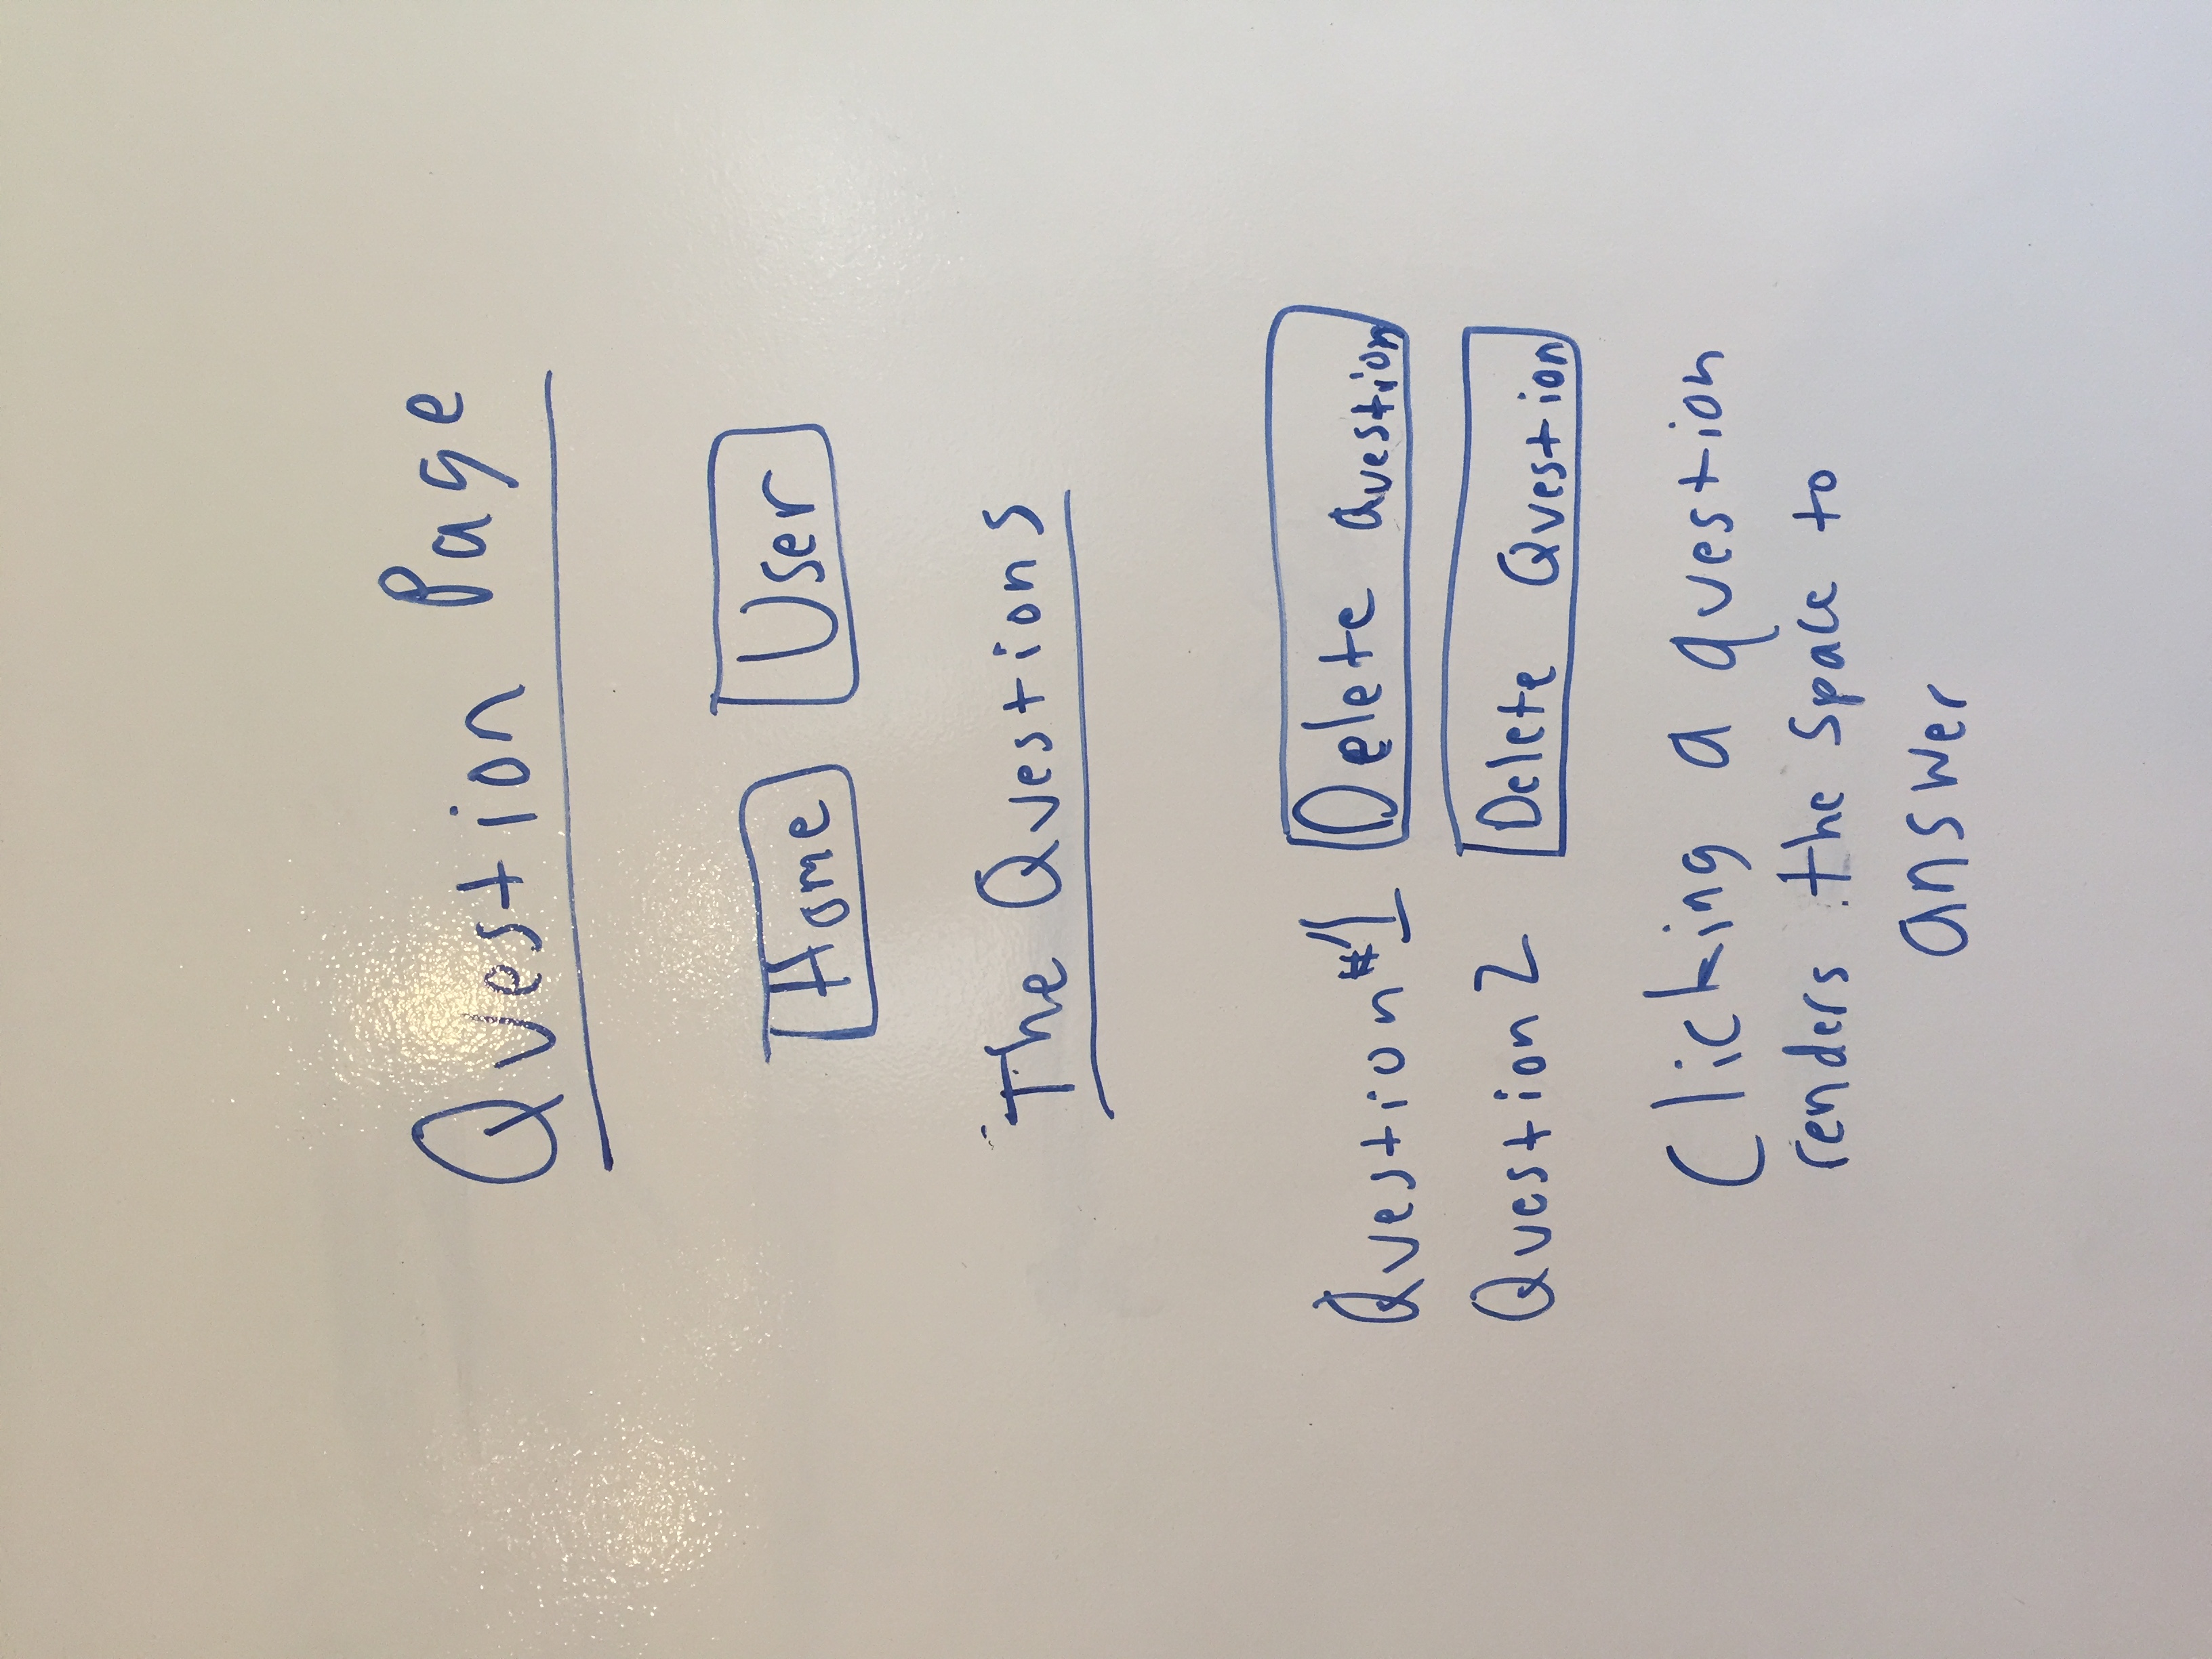 Question Page
Home User
The Questions
Question #1 Delete Question
Question 2 Delete Question
Clicking a question
renders the space to
answer